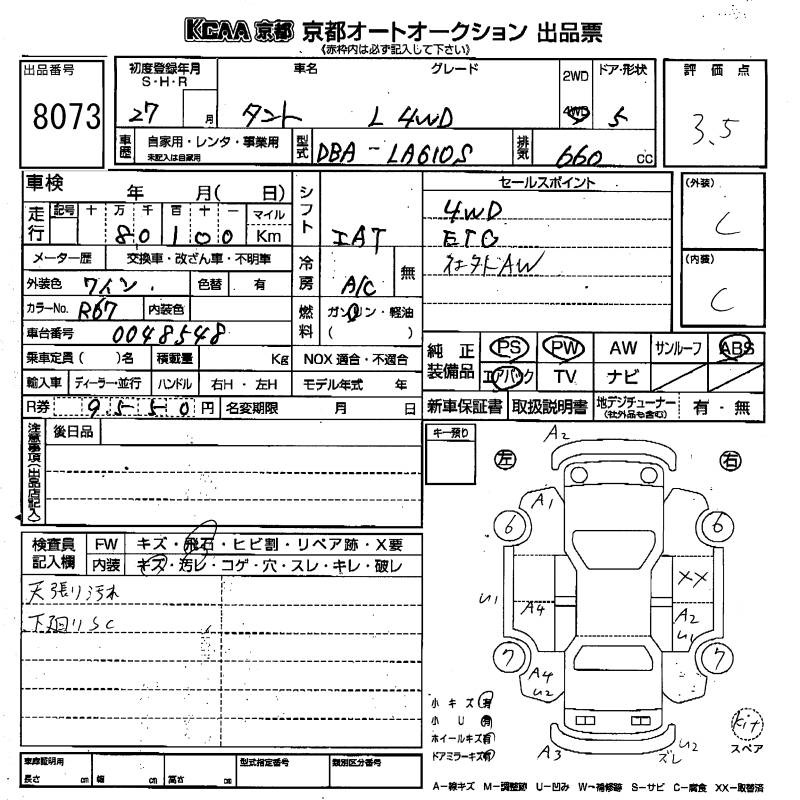 KCAA 京都 京都オートオークション 出品票
《赤枠内は必ず記入して下さい》
出品番号
8073
初度登録年月
S・H・R
27 月
車名 グレード
タント L 4WD
2WD
4WD
ドア・形状
5
評価点
3.5
車歴 自家用・レンタ・事業用
未記入は自家用
型式 DBA-LA610S
排気 660 cc
車検 年 月( 日)
走行 記号 十 万 千 百 十 一 マイル
8 0 1 0 0 Km
メーター歴 交換車・改ざん車・不明車
外装色 ワイン 色替 有
カラーNo. R67 内装色
車台番号 0048548
乗車定員( )名 積載量 Kg
輸入車 ディーラー・並行 ハンドル 右H・左H
R券 9550 円 名変期限 月 日
シフト IAT
冷房 A/C 無
燃料 ガソリン・軽油
( )
NOX 適合・不適合
モデル年式 年
セールスポイント
4WD
ETC
社外アルミAW
(外装)
C
(内装)
C
純正装備品 PS PW AW サンルーフ ABS
エアバック TV ナビ
新車保証書 取扱説明書 地デジチューナー 有・無
(社外品も含む)
注意事項(出品店記入)
後日品
キー預り
検査員記入欄 FW キズ・飛石・ヒビ割・リペア跡・X要
内装 キズ・汚レ・コゲ・穴・スレ・キレ・破レ
天張り汚れ
下廻りSC
左 右
A2
A1
6 6
XX
U1 A4 A2
U1
7 7
A4
U2
A3 U2
ズレ
小キズ 有
小U 有
ホイールキズ 有
ドアミラーキズ 有
Kit
スペア
車庫証明用 型式指定番号 類別区分番号
長さ cm 幅 cm 高さ cm
A-線キズ M-調整跡 U-凹み W-補修跡 S-サビ C-腐食 XX-取替済